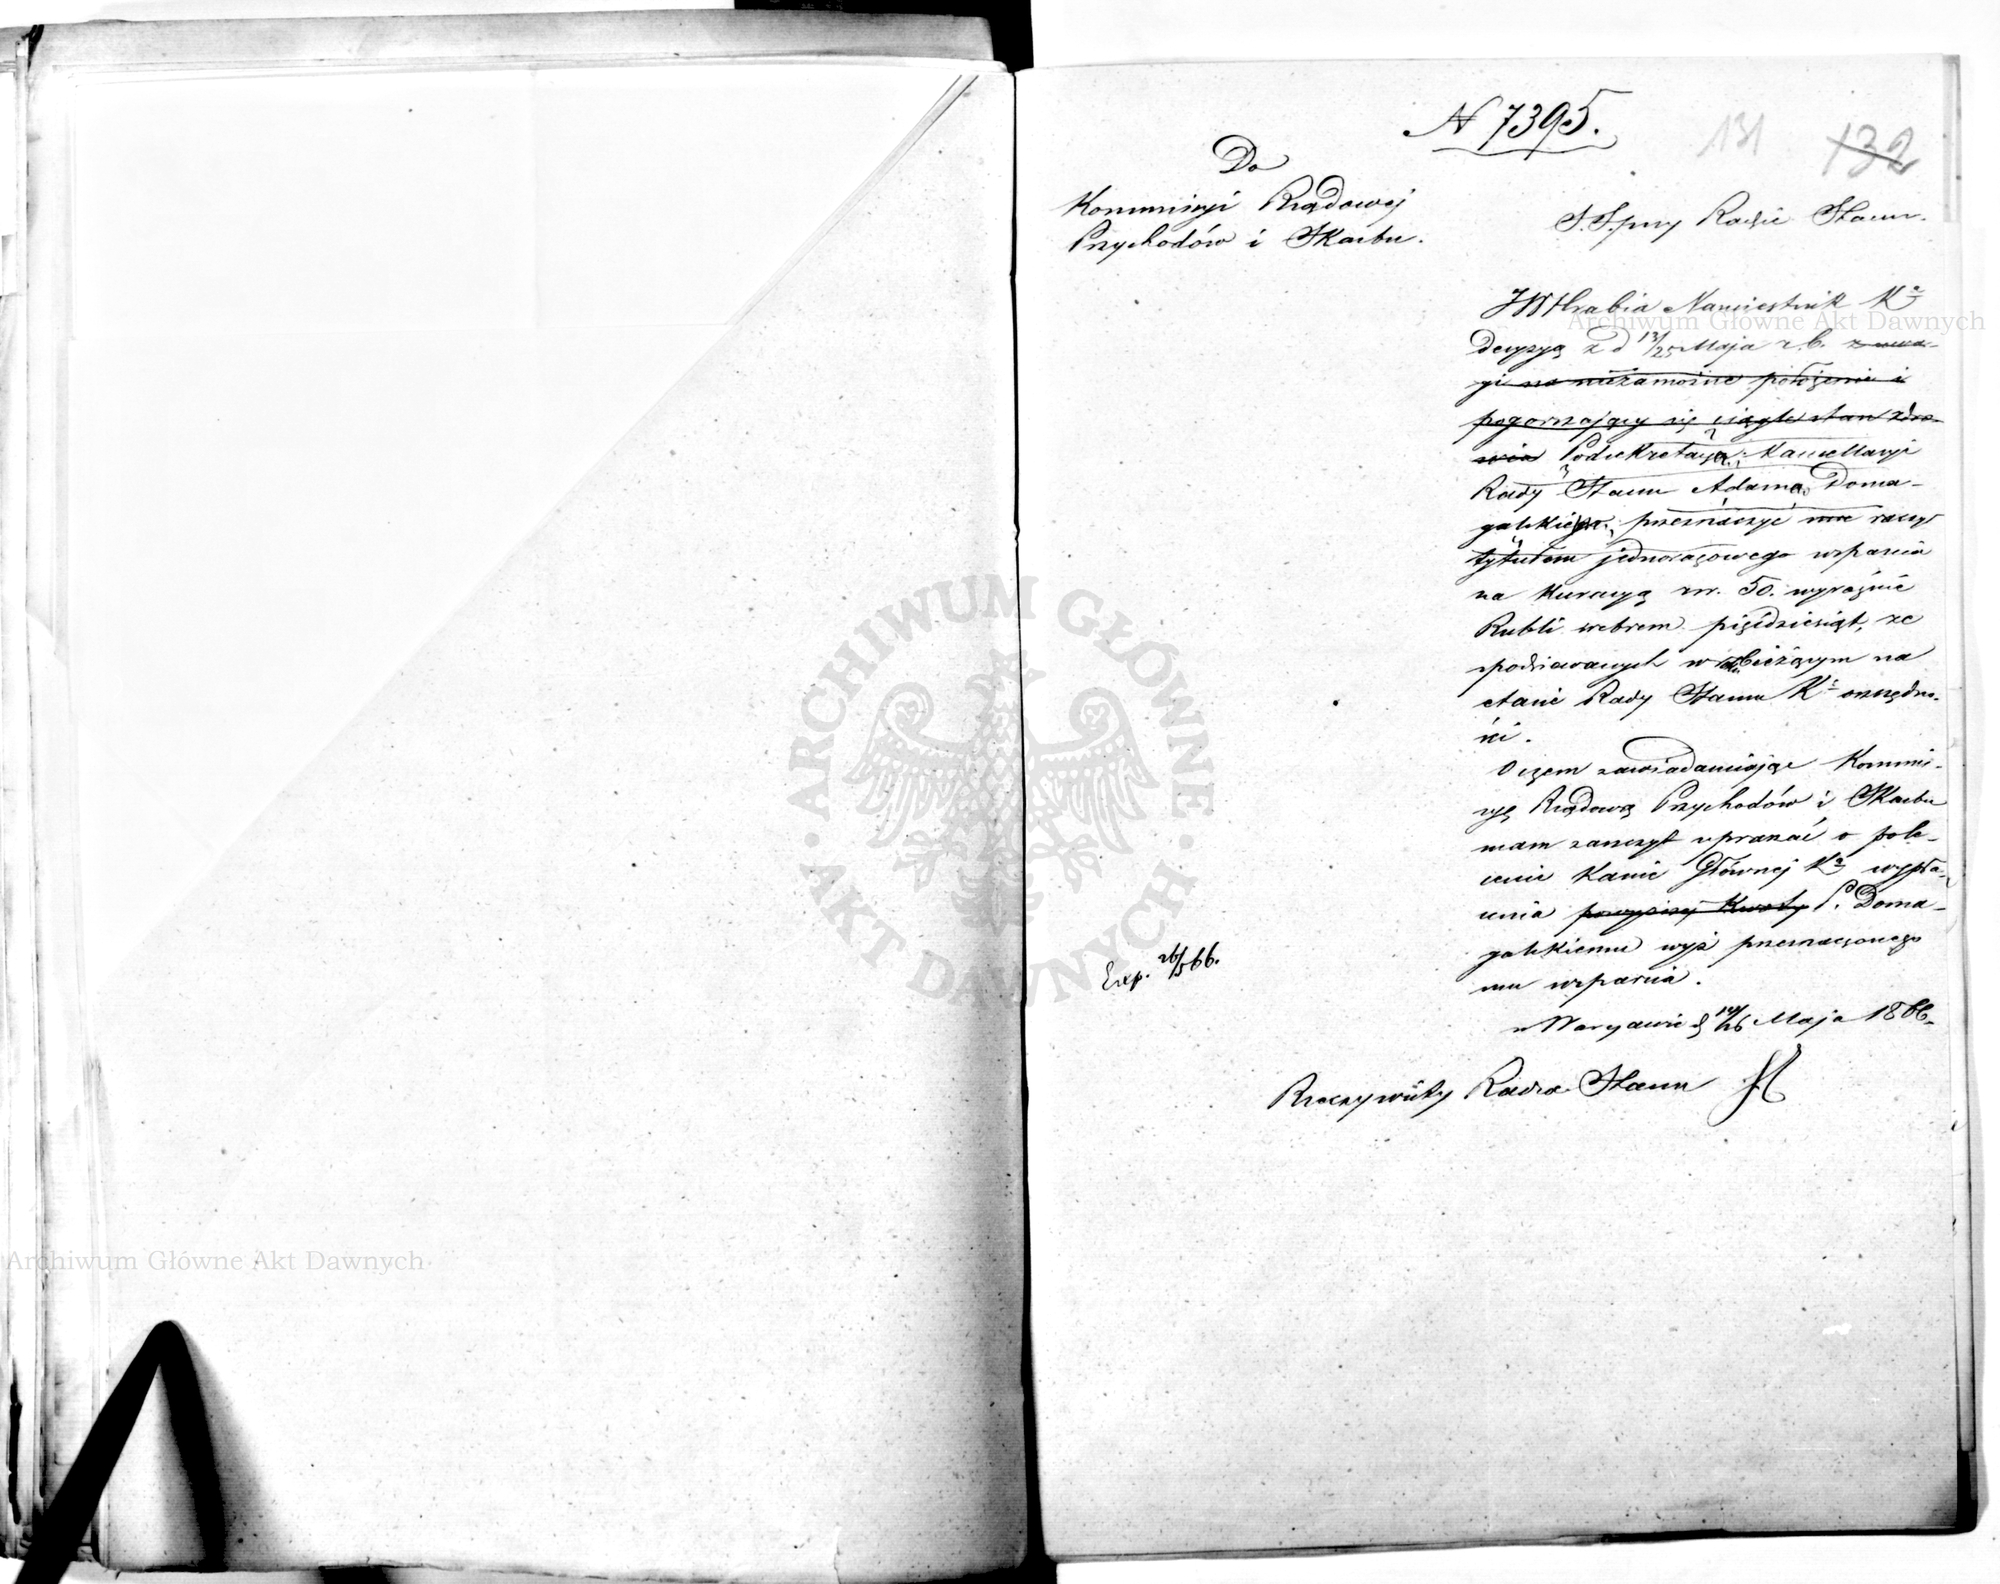 N 7395.
131 132
Do
Kommissyi Rządowej
Przychodów i Skarbu.
S. S. przy Radzie Stanu.
JW Hrabia Namiestnik Kr
decyzyą z d 13/25 Maja r. b. z uwa-
gi na niezamożne położenie i
pogorszający się ciągle stan zdro-
wia Podsekretarza Kancellaryi
Rady Stanu Adama Doma-
galskiego, przeznaczyć mu raczył
tytułem jednorazowego wsparcia
na kuracyą rsr. 50. wyraźnie
Rubli srebrem pięćdziesiąt, ze
spodziewanych w bieżącym na
etacie Rady Stanu Kr oszczędno-
ści.
O czem zawiadamiając Kommis-
syę Rządową Przychodów i Skarbu
mam zaszczyt upraszać o pole-
cenie Kassie Głównej Kr wypła-
cenia powyższej kwoty P. Doma-
galskiemu wyż przeznaczonego
mu wsparcia.
Exp. 26/5 66.
w Warszawie d 14/26 Maja 1866.
Rzeczywisty Radca Stanu
Archiwum Główne Akt Dawnych
ARCHIWUM GŁÓWNE · AKT DAWNYCH ·
Archiwum Główne Akt Dawnych